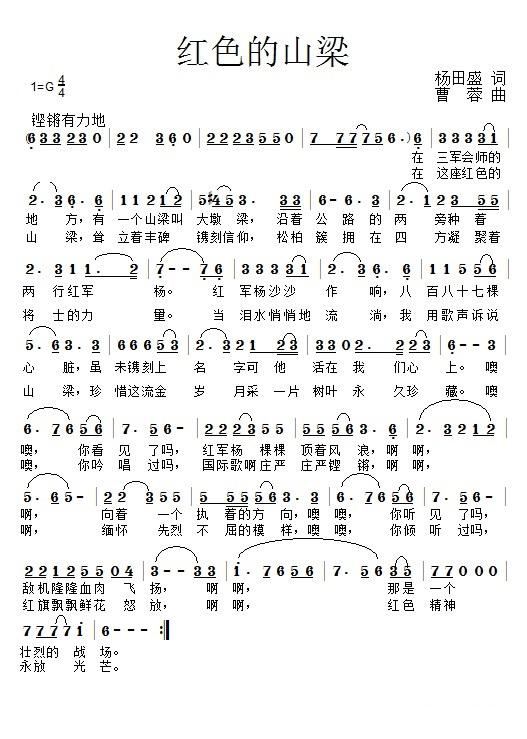 红色的山梁
1=G 4/4
杨田盛 词
曹 蓉 曲
铿锵有力地
(6 3 3 2 3 0 | 2 2 3 6 0 | 2 2 2 3 5 5 0 | 7 7 7 7 5 6. ) 6 | 3 3 3 3 1 |
在 三军会师的
在 这座红色的
2. 3 6. 6 | 1 1 2 1 2 | 5 #4 5 3. 3 3 | 6 - 6. 3 | 2. 1 2 3 5 5 |
地 方,有 一个山梁叫 大墩 梁, 沿着 公 路 的 两 旁种 着
山 梁,耸 立着丰碑 镌刻信仰, 松柏 簇 拥 在 四 方凝 聚着
2. 3 1 1. 2 | 7 - - 7 6 | 3 3 3 3 3 1 | 2. 3 6. 6 | 1 1 5 5 6 |
两 行红军 杨。 红 军杨沙沙 作 响,八 百八十七棵
将 士的力 量。 当 泪水悄悄地 流 淌,我 用歌声诉说
心 脏,虽 未镌刻上 名 字可他 活在 我 们心 上。噢
山 梁,珍 惜这流金 岁 月采 一片 树叶 永 久珍 藏。噢
噢, 你看 见 了吗, 红军杨 棵棵 顶着风 浪,啊 啊,
噢, 你吟 唱 过吗, 国际歌啊庄严 庄严铿 锵,啊 啊,
啊, 向着 一个 执 着的方 向,噢 噢, 你听 见了吗,
啊, 缅怀 先烈 不 屈的模 样,噢 噢, 你倾 听过吗,
2 2 1 2 5 5 0 4 | 3 - - 3 3 | 1. 7 6 5 6 | 7. 5 6 3 5 | 7 7 7 7 5 5 |
敌机隆隆血肉 飞 扬, 啊 啊, 那是 一个
红旗飘飘鲜花 怒 放, 啊 啊, 红色 精神
7 7 7 7 1 | 6 - - - :‖
壮烈的 战 场。
永放 光 芒。